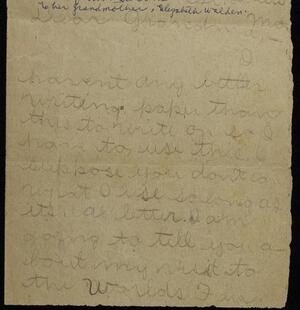 to her grandmother, Elizabeth Walden.
Dear Grandma
I
havent any better
writing paper than
this to write on so I
have to use this. I
suppose you dont ca
I use so long as
its a letter. I am
going to tell you a
bout my visit to
the Worlds Fair